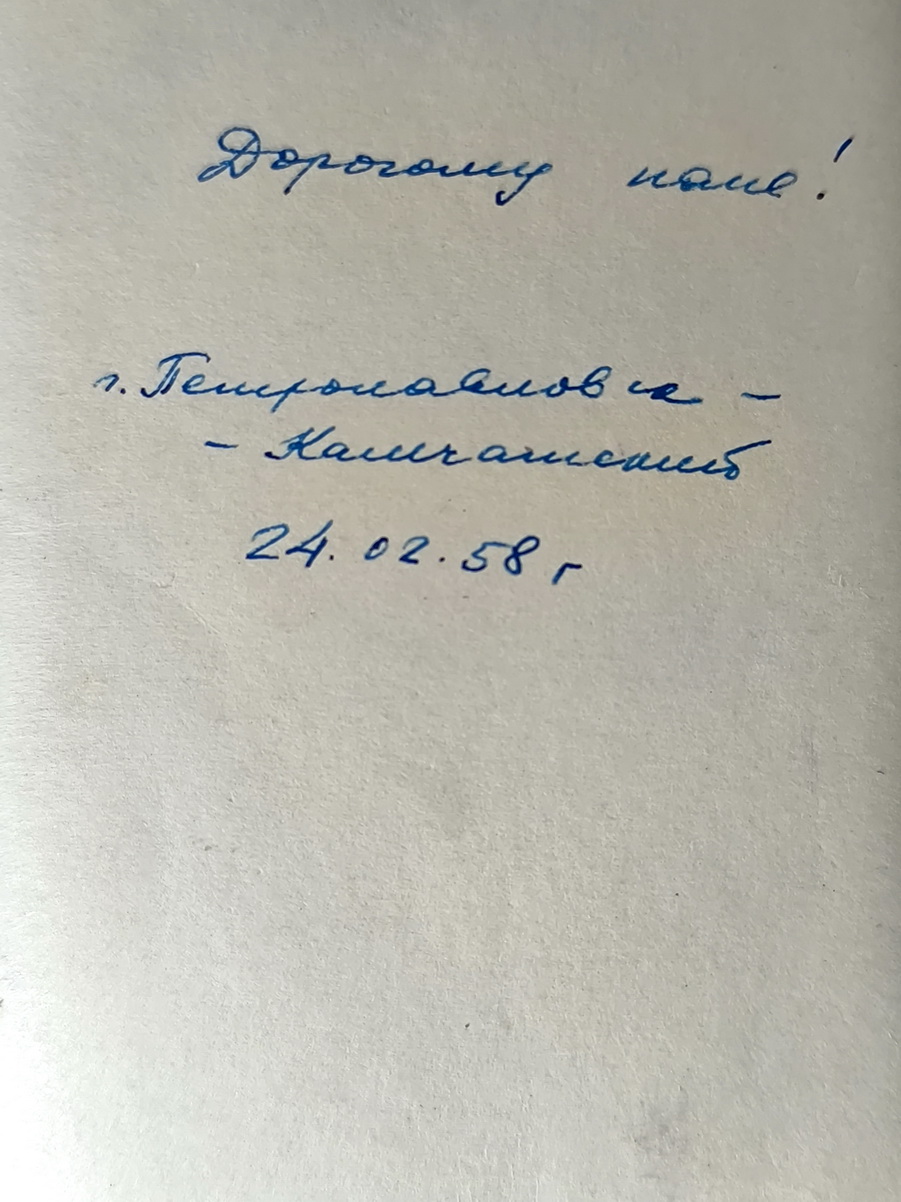 Дорогому папе!
г. Петропавловск -
- Камчатский
24.02.58 г